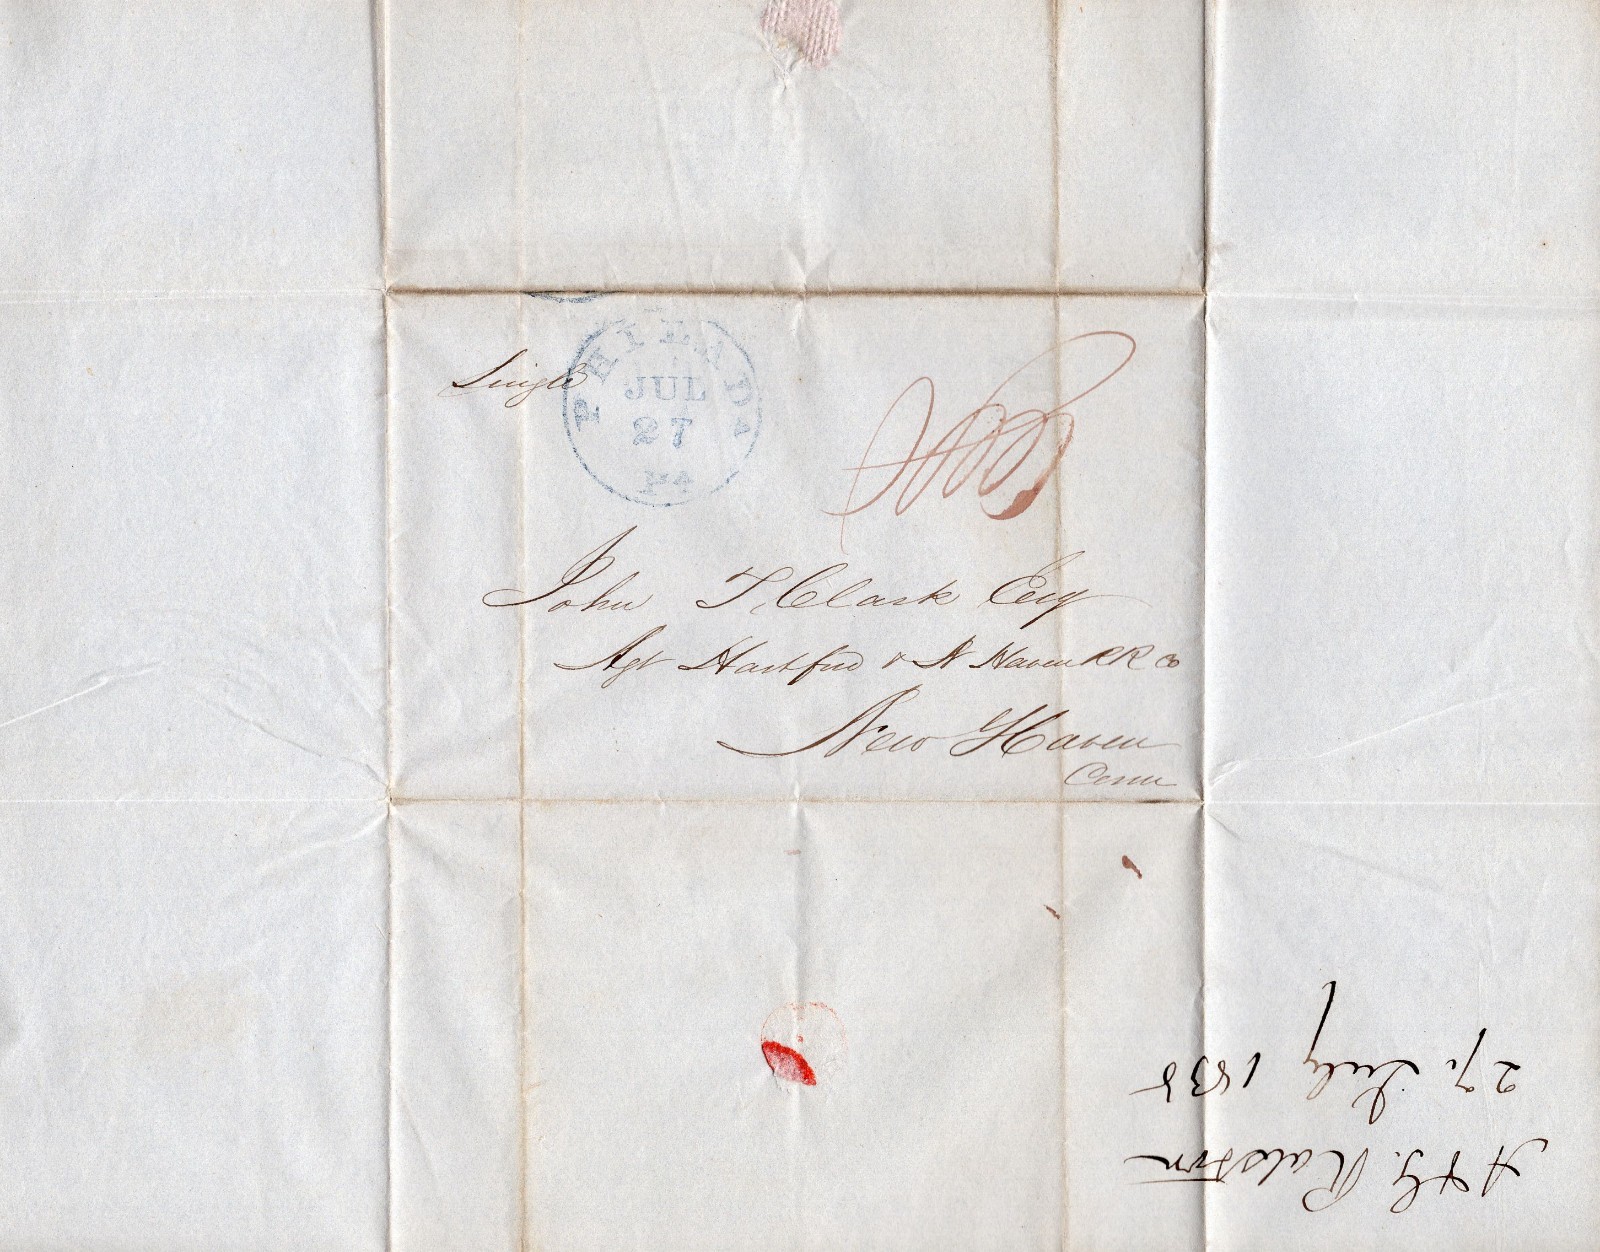 Single
PHILADA
JUL
27
Pa
John T. Clark Esq
Agt Hartford & N Haven RR Co
New Haven
Conn
A & G. Ralston
27. July 1838